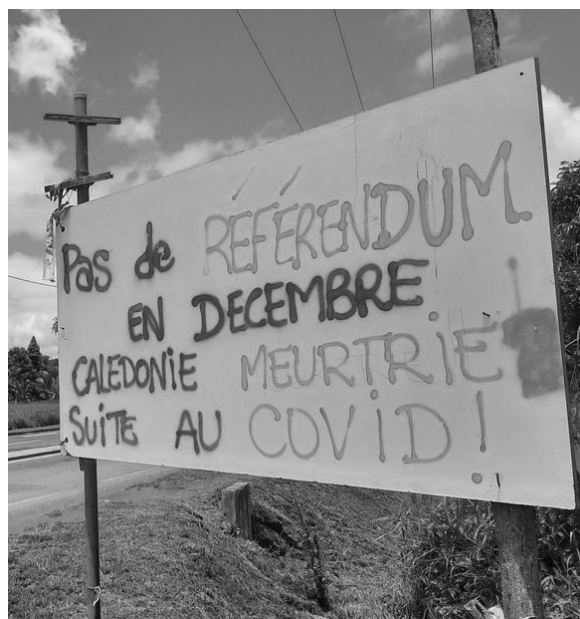 Pas de RÉFÉRENDUM
EN DECEMBRE
CALEDONIE MEURTRIE
SUITE AU COVID!